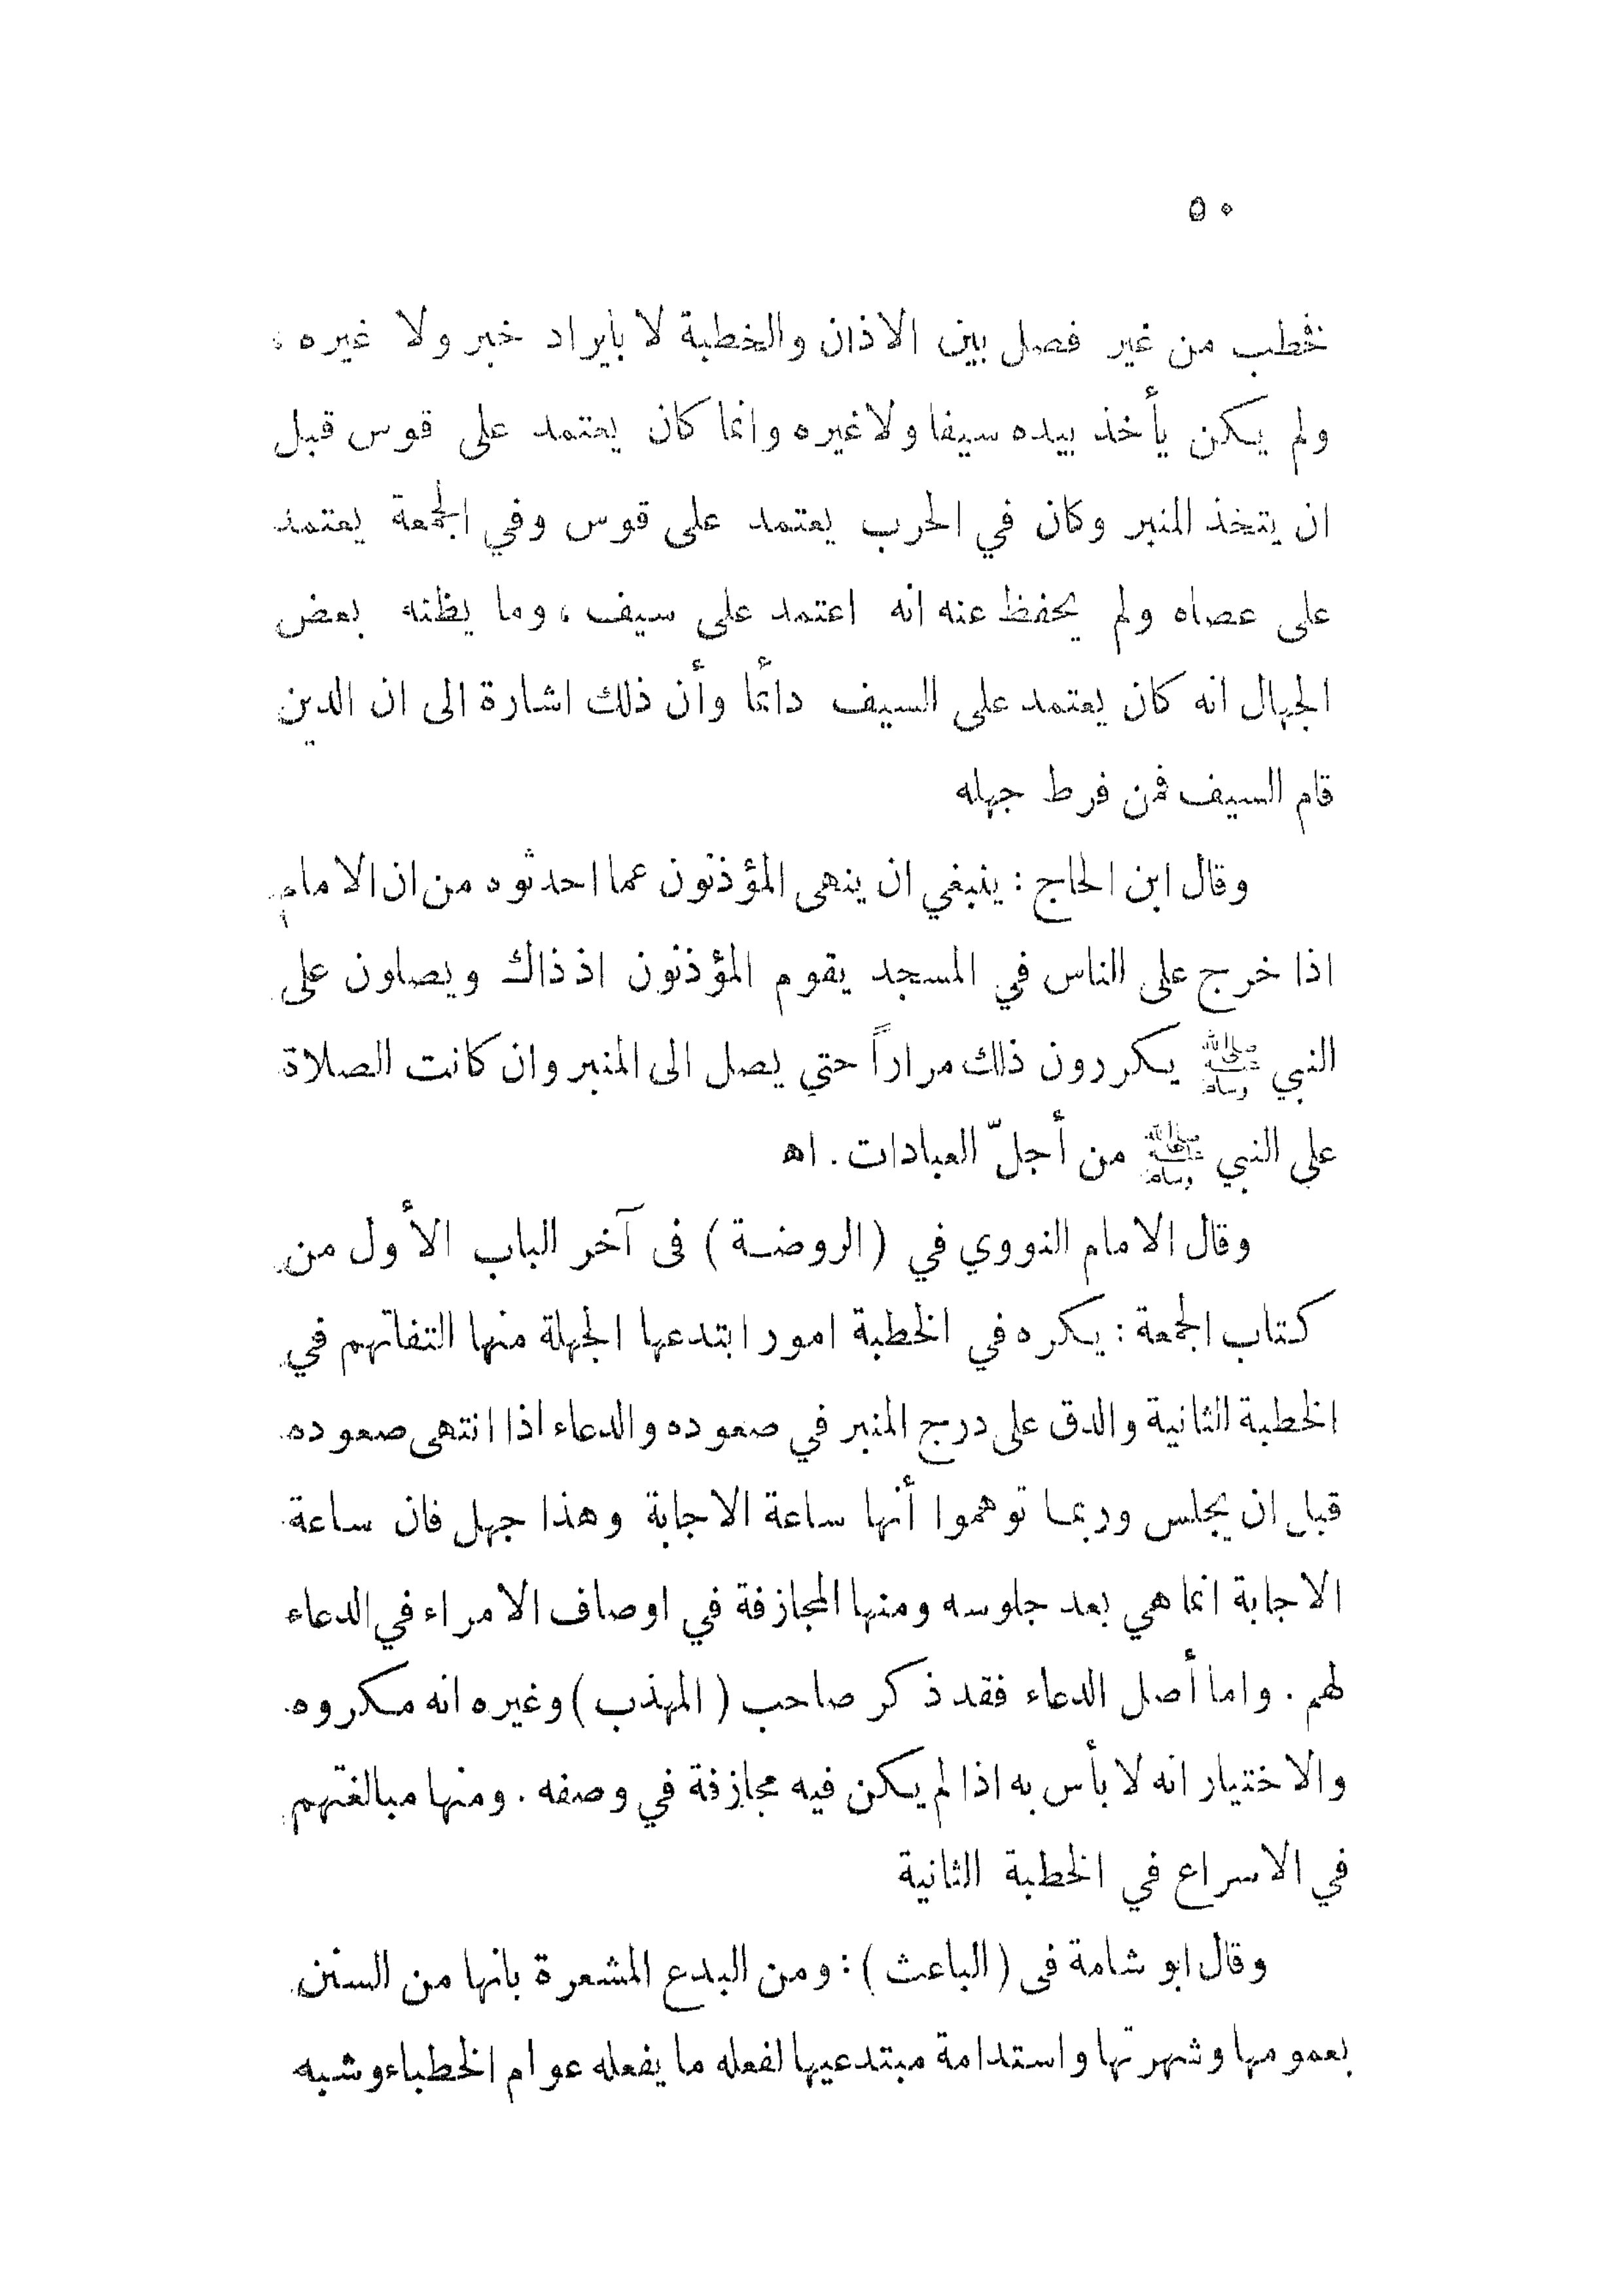 ٥٠
فخطب من غير فصل بين الاذان والخطبة لا بأيراد خبر ولا غيره ،
ولم يكن يأخذ بيده سيفا ولا غيره وانما كان يعتمد على قوس قبل
ان يتخذ المنبر وكان في الحرب يعتمد على قوس وفي الجمعة يعتمد
على عصاه ولم يحفظ عنه انه اعتمد على سيف ، وما يظنه بعض
الجهال انه كان يعتمد على السيف دائما وأن ذلك اشارة الى ان الدين
قام السيف فمن فرط جهله
وقال ابن الحاج : ينبغي ان ينهى المؤذنون عما احدثوه من ان الامام
اذا خرج على الناس في المسجد يقوم المؤذنون اذ ذاك ويصلون على
النبي ﷺ يكررون ذلك مراراً حتي يصل الى المنبر وان كانت الصلاة
على النبي ﷺ من أجلّ العبادات . اه
وقال الامام النووي في ( الروضة ) فى آخر الباب الأول من
كتاب الجمعة : يكره في الخطبة امور ابتدعها الجهلة منها التفاتهم في
الخطبة الثانية والدق على درج المنبر في صعوده والدعاء اذا انتهى صعوده
قبل ان يجلس وربما توهموا أنها ساعة الاجابة وهذا جهل فان ساعة
الاجابة انما هي بعد جلوسه ومنها المجازفة في اوصاف الامراء في الدعاء
لهم . واما أصل الدعاء فقد ذكر صاحب ( المهذب ) وغيره انه مكروه
والاختيار انه لا بأس به اذا لم يكن فيه مجازفة في وصفه . ومنها مبالغتهم
في الاسراع في الخطبة الثانية
وقال ابو شامة فى ( الباعث ) : ومن البدع المشعرة بانها من السنن
بعمومها وشهرتها واستدامة مبتدعيها لفعله ما يفعله عوام الخطباء وشبه